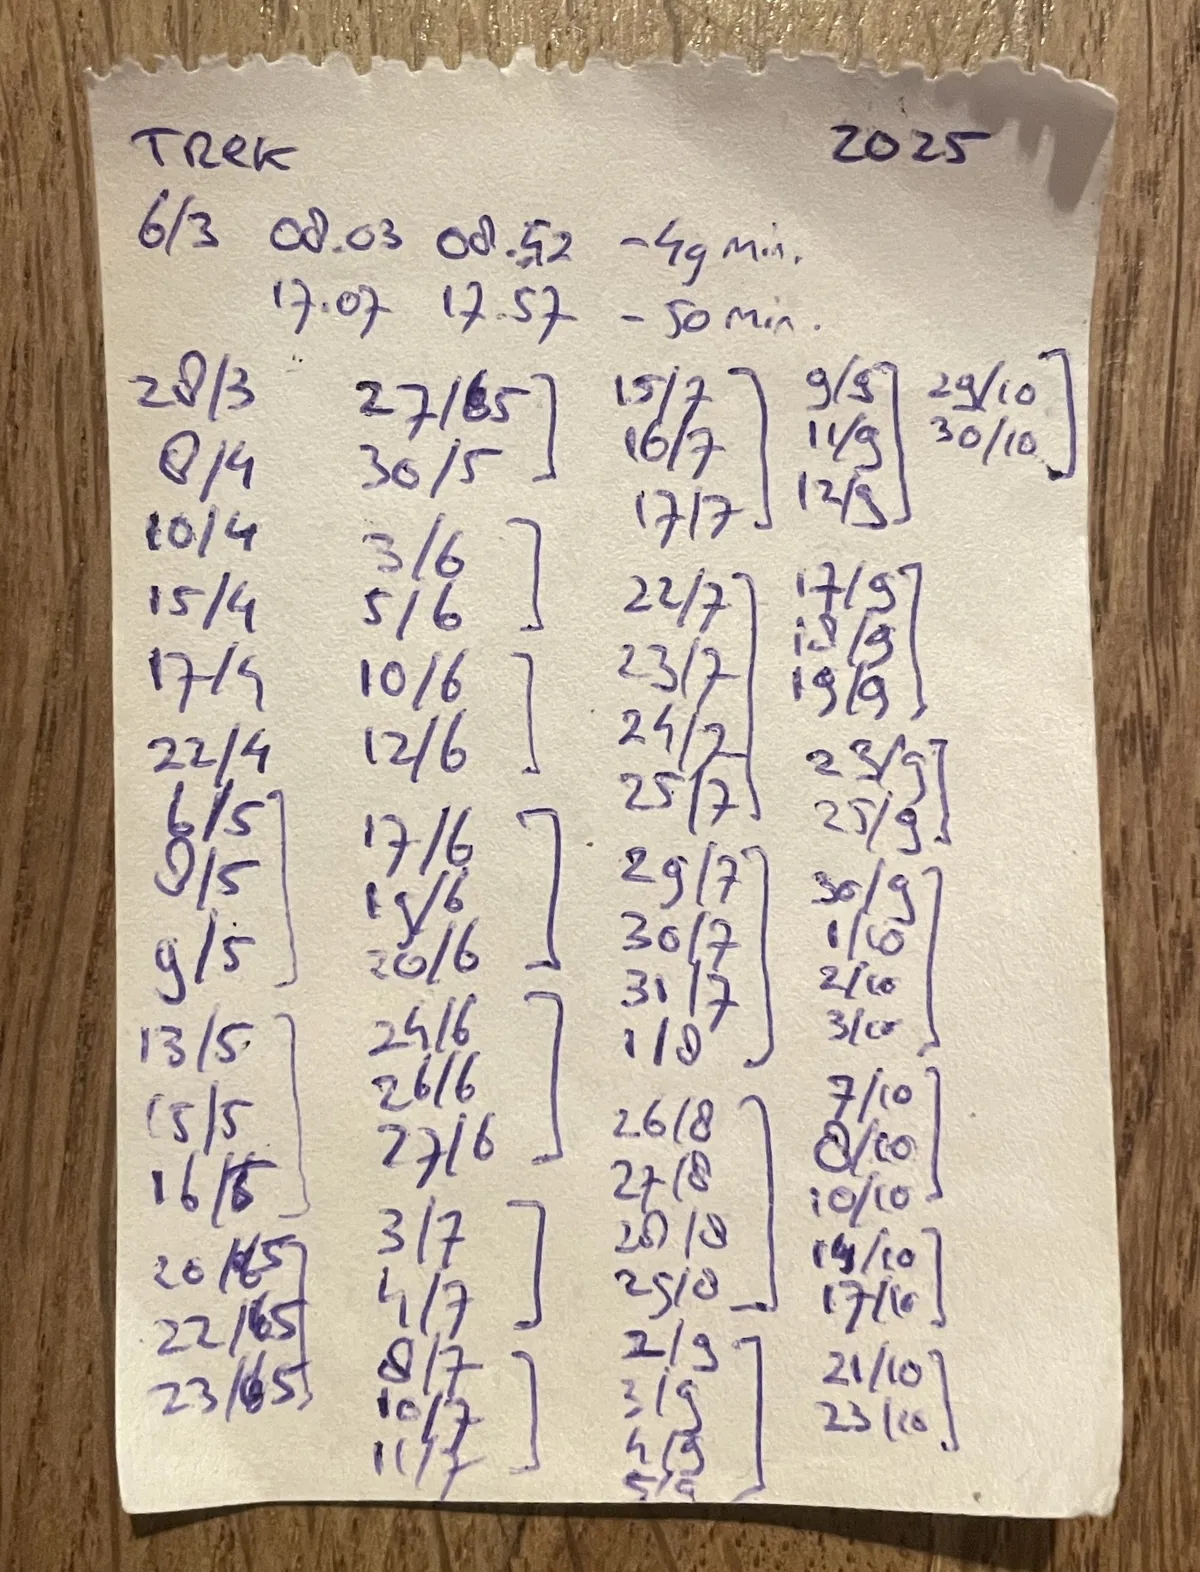 TREK 2025
6/3 08.03 08.42 - 49 min.
17.07 17.57 - 50 min.
28/3
8/4
10/4
15/4
17/4
22/4
6/5
8/5
9/5
13/5
15/5
16/5
20/5
22/5
23/5
27/5
30/5
3/6
5/6
10/6
12/6
17/6
19/6
20/6
24/6
26/6
27/6
3/7
4/7
8/7
10/7
11/7
15/7
16/7
17/7
22/7
23/7
24/7
25/7
29/7
30/7
31/7
1/8
26/8
27/8
28/8
29/8
2/9
3/9
4/9
5/9
9/9
11/9
12/9
17/9
18/9
19/9
23/9
25/9
30/9
1/10
2/10
3/10
7/10
8/10
10/10
14/10
17/10
21/10
23/10
29/10
30/10